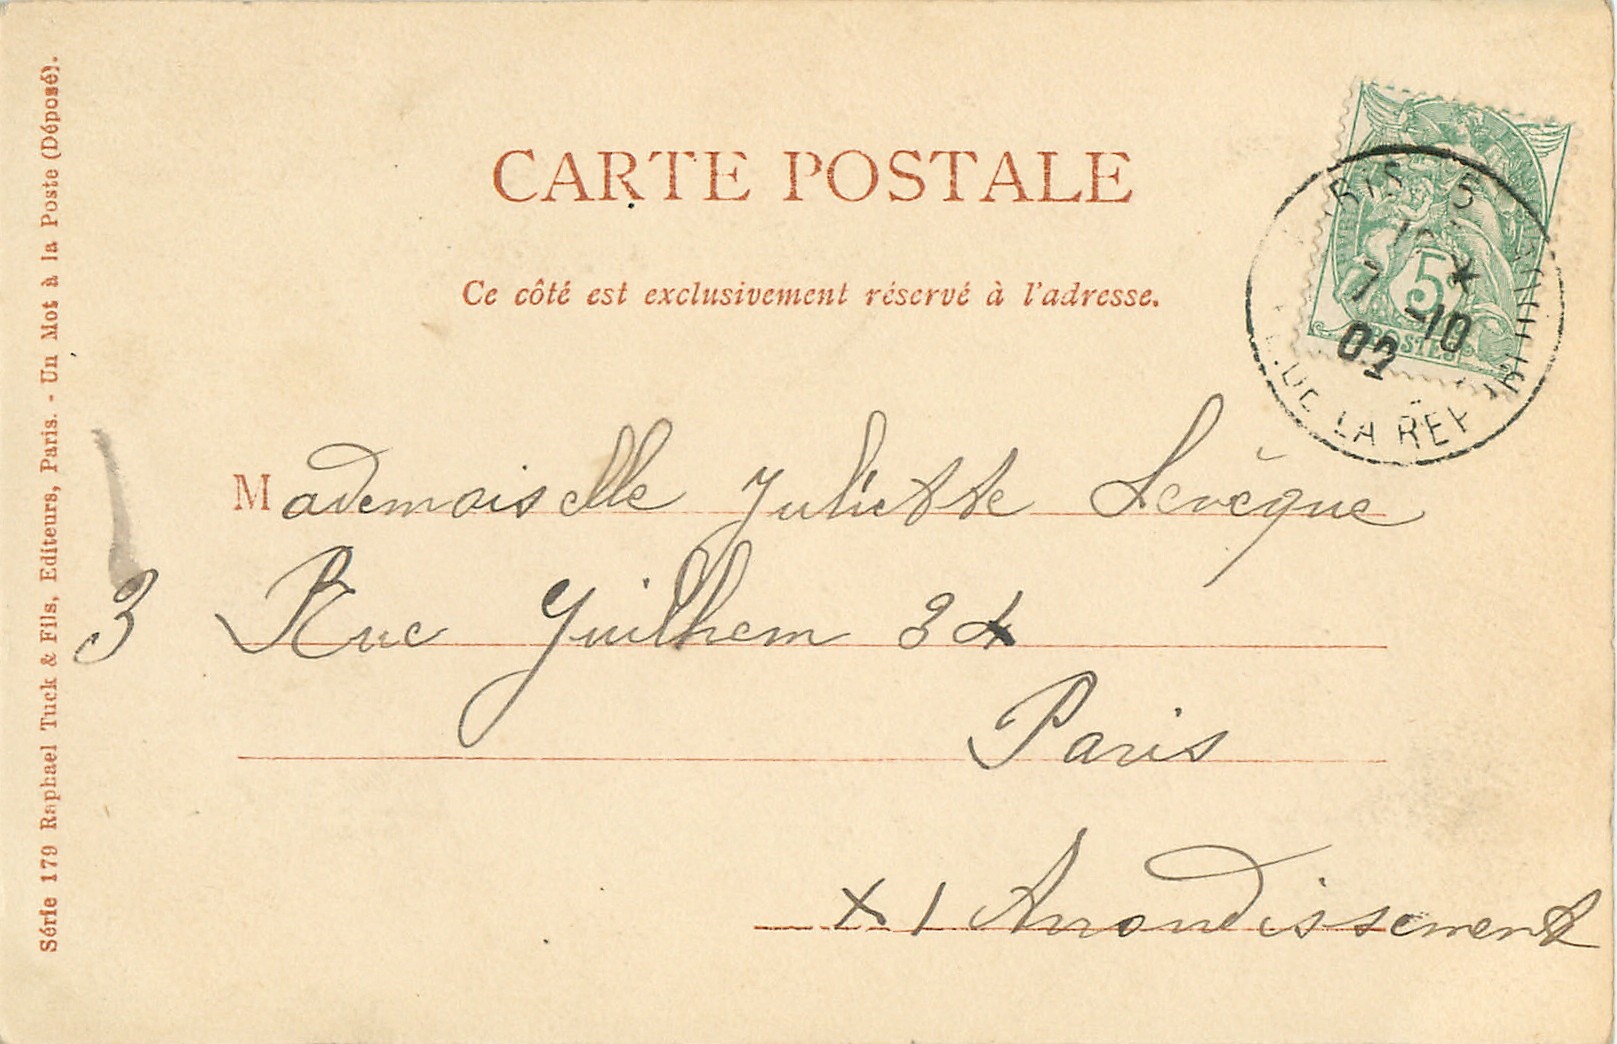 CARTE POSTALE
Ce côté est exclusivement réservé à l'adresse.
5
POSTES
7 -10
02
LA REP
Mademoiselle Juliette Levèque
3 Rue Guilhem 34
Paris
XI Arrondissement
Série 179 Raphael Tuck & Fils, Editeurs, Paris. - Un Mot à la Poste (Déposé).